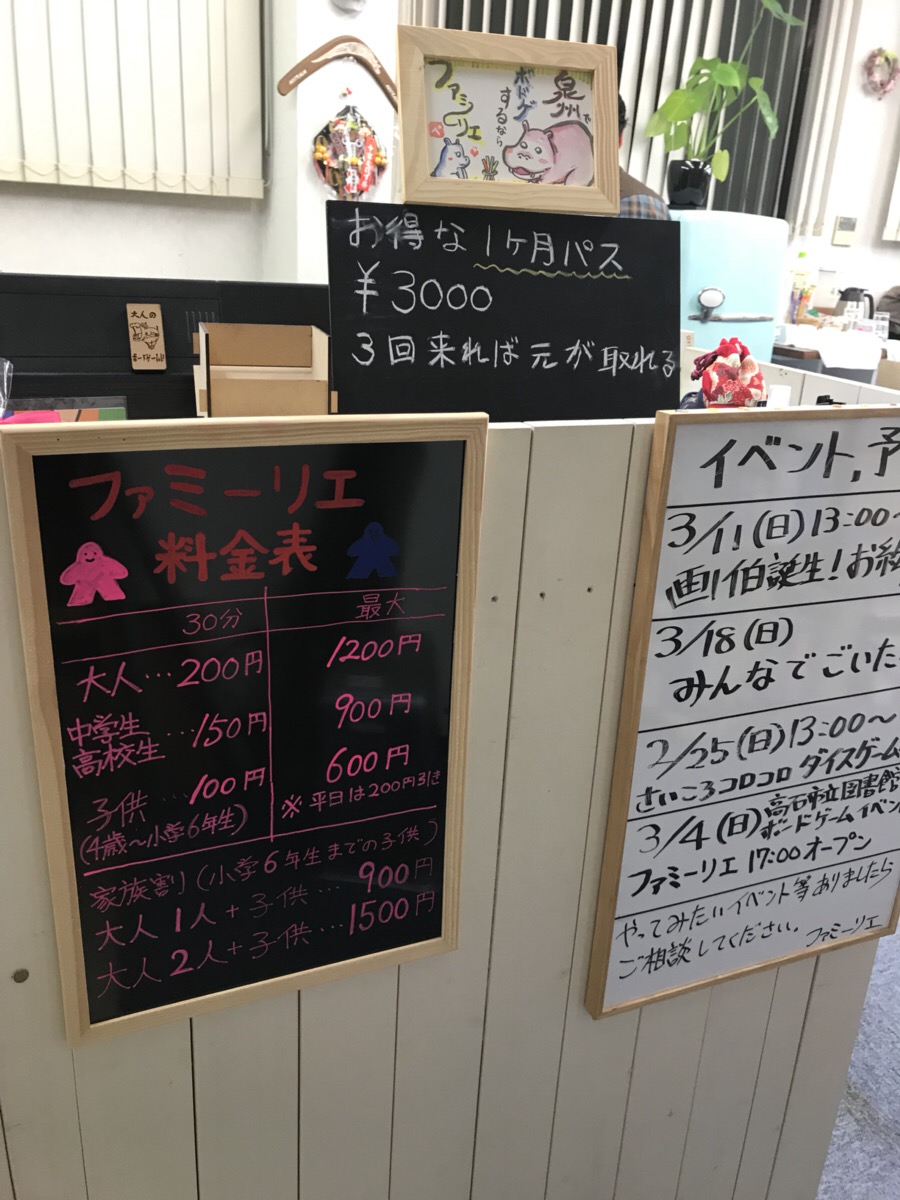 泉州で
ボドゲ
するなら
ファミーリエ
お得な1ヶ月パス
¥3000
3回来れば元が取れる
大人の
ファミーリエ
料金表
30分 最大
大人…200円 1200円
中学生
高校生…150円 900円
子供…100円 600円
(4歳〜小学6年生) ※平日は200円引き
家族割(小学6年生までの子供)
大人1人+子供…900円
大人2人+子供…1500円
イベント,予
3/11(日)13:00〜
画伯誕生!お絵
3/18(日)
みんなでごいた
2/25(日)13:00〜
さいころコロコロ ダイスゲーム
3/4(日)高石市立図書館
ボードゲームイベン
ファミーリエ 17:00オープン
やってみたいイベント等ありましたら
ご相談してください。ファミーリエ